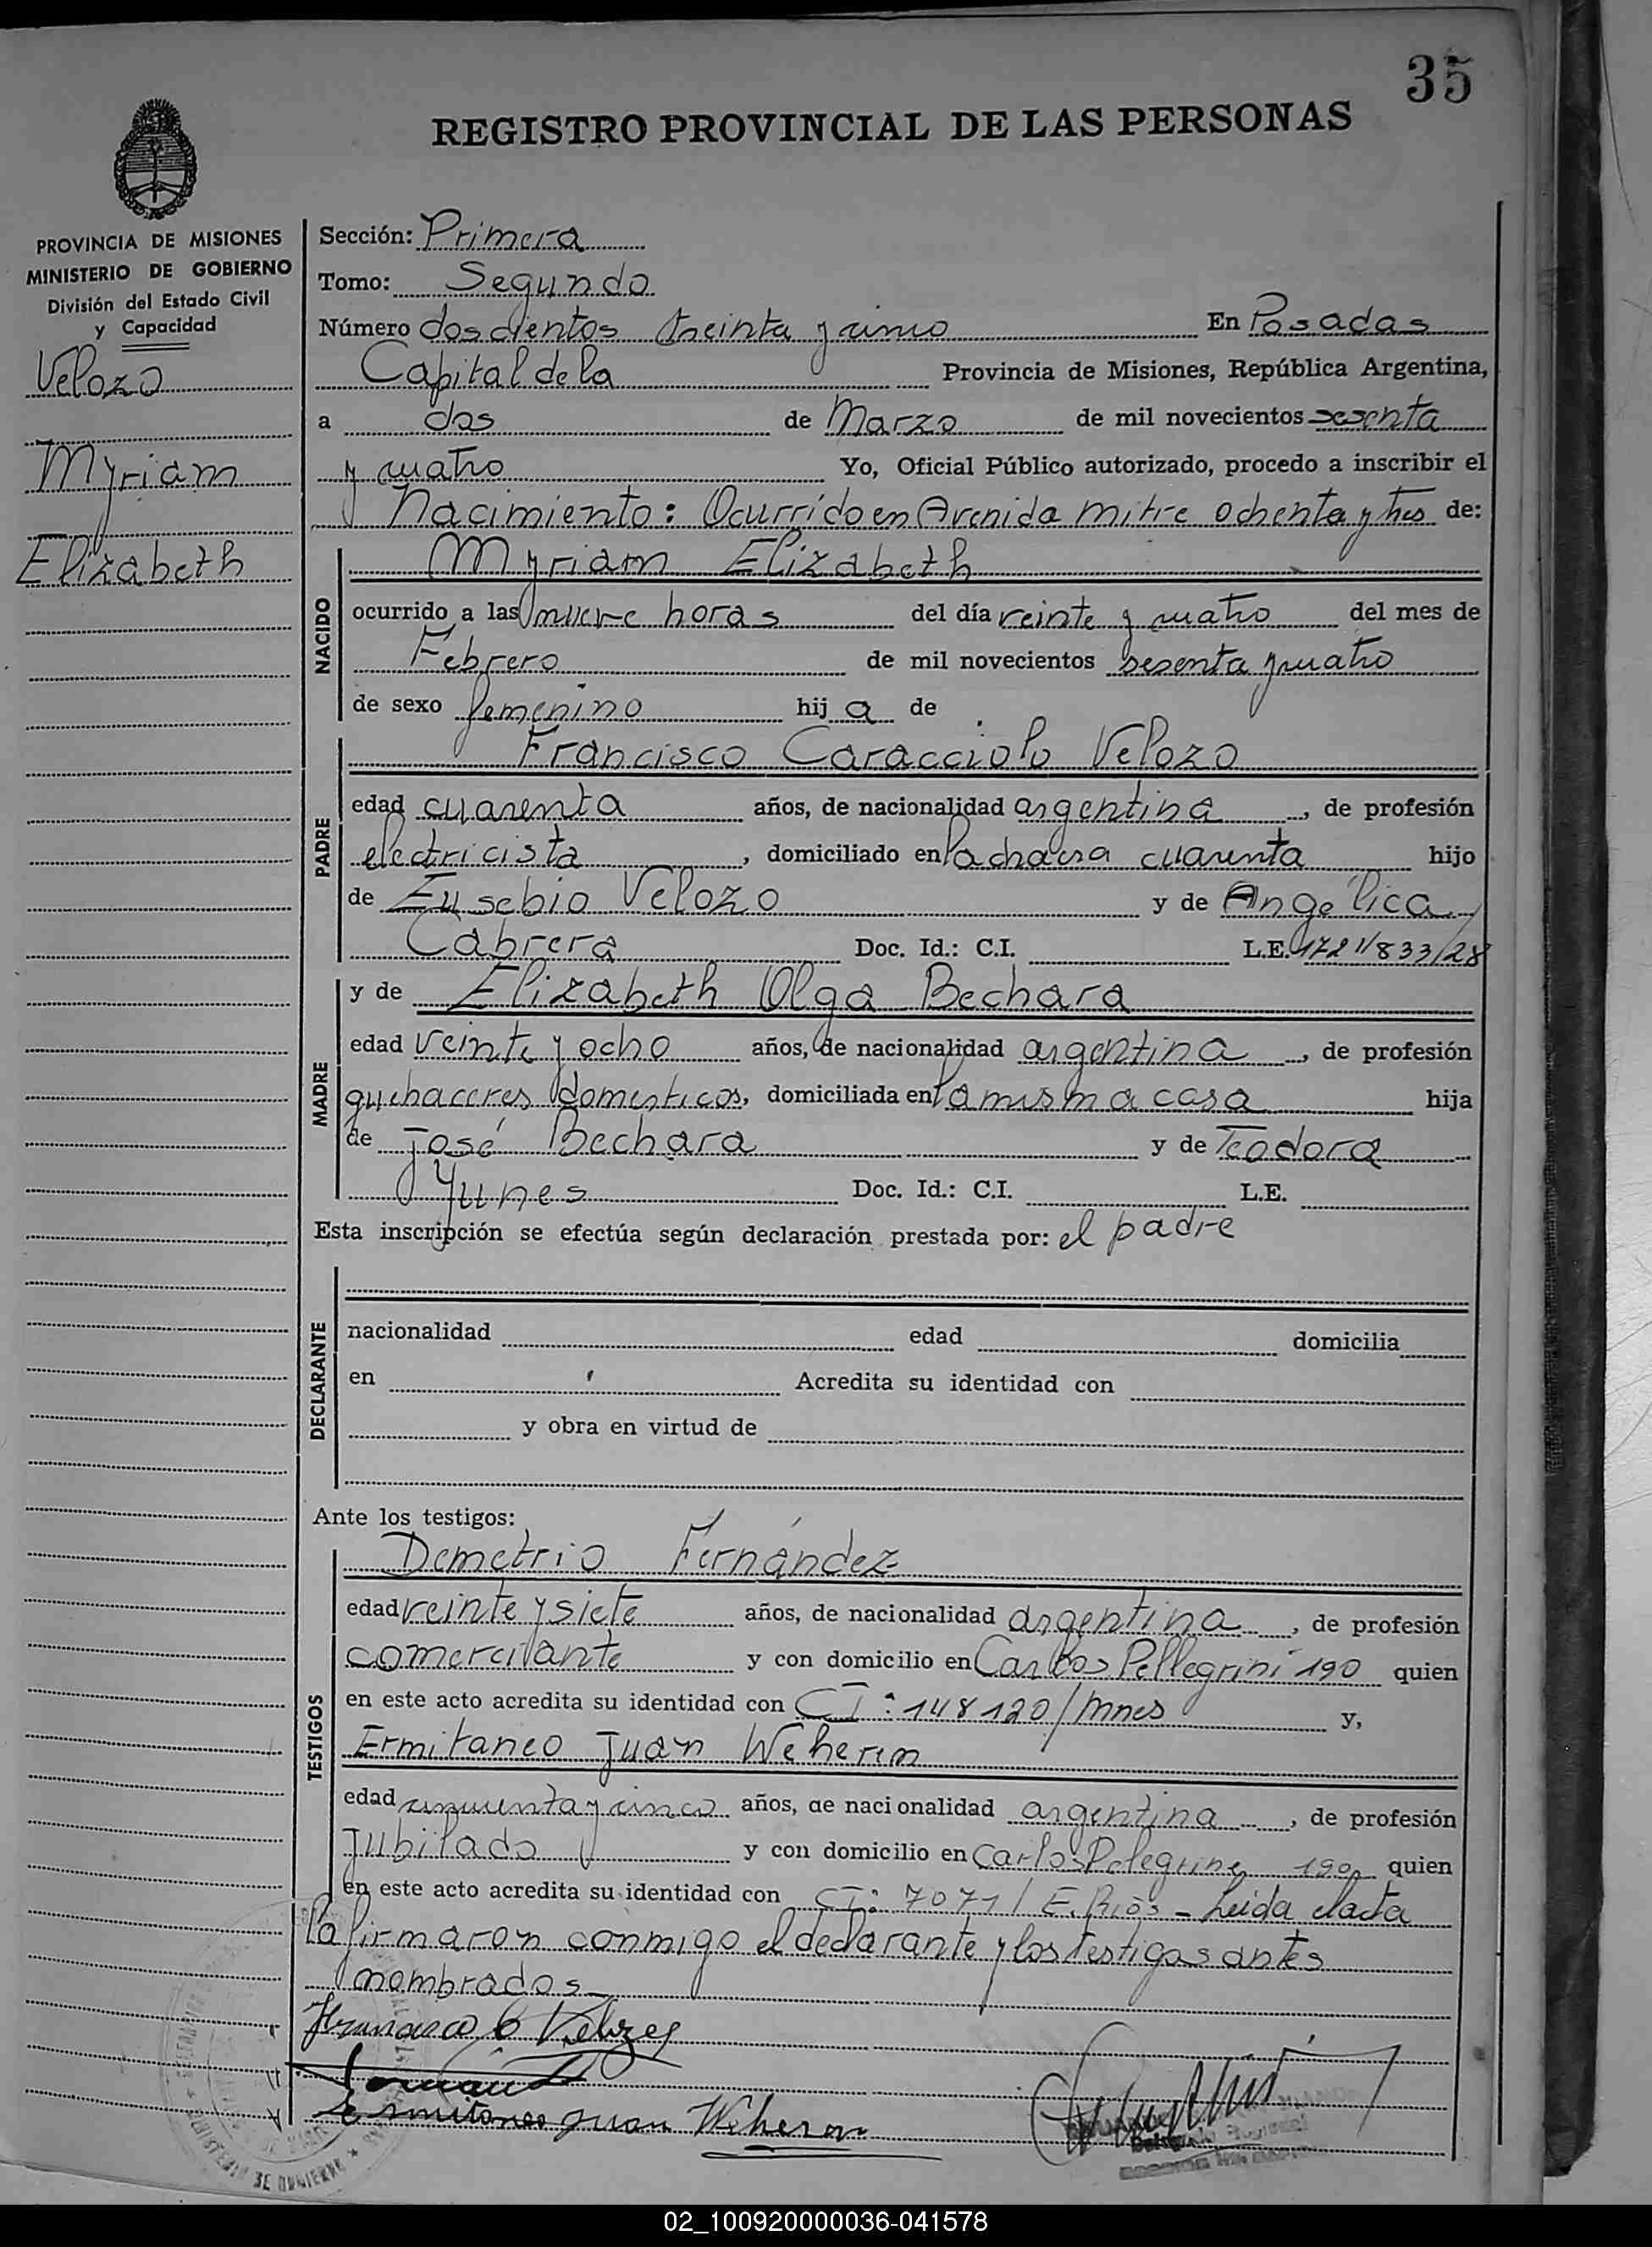 35
REGISTRO PROVINCIAL DE LAS PERSONAS
PROVINCIA DE MISIONES
MINISTERIO DE GOBIERNO
División del Estado Civil
y Capacidad
Velozo
Myriam
Elizabeth
Sección: Primera
Tomo: Segundo
Número doscientos treinta y cinco En Posadas
Capital de la Provincia de Misiones, República Argentina,
a dos de Marzo de mil novecientos sesenta
y cuatro Yo, Oficial Público autorizado, procedo a inscribir el
Nacimiento: Ocurrido en Avenida mitre ochenta y tres de:
NACIDO
Myriam Elizabeth
ocurrido a las nueve horas del día veinte y cuatro del mes de
Febrero de mil novecientos sesenta y cuatro
de sexo femenino hij a de
PADRE
Francisco Caracciolo Velozo
edad cuarenta años, de nacionalidad argentina, de profesión
electricista, domiciliado en la chacra cuarenta hijo
de Eusebio Velozo y de Angélica
Cabrera Doc. Id.: C.I. L.E.
MADRE
y de Elizabeth Olga Bechara
edad veinte y ocho años, de nacionalidad argentina, de profesión
quehaceres domesticos, domiciliada en la misma casa hija
de José Bechara y de Teodora
Yunes Doc. Id.: C.I. L.E.
Esta inscripción se efectúa según declaración prestada por: el padre
DECLARANTE
nacionalidad edad domicilia
en Acredita su identidad con
y obra en virtud de
Ante los testigos:
TESTIGOS
Demetrio Fernández
edad veinte y siete años, de nacionalidad argentina, de profesión
comerciante y con domicilio en Carlos Pellegrini 190 quien
en este acto acredita su identidad con CI: 148120/Mnes y,
Ermitaneo Juan Weherin
edad cincuenta y cinco años, de nacionalidad argentina, de profesión
Jubilado y con domicilio en Carlos Pelegrine 190 quien
en este acto acredita su identidad con CI: 7071/ E.Ríos - Leida el acta
la firmaron conmigo el declarante y los testigos antes
nombrados
02_100920000036-041578